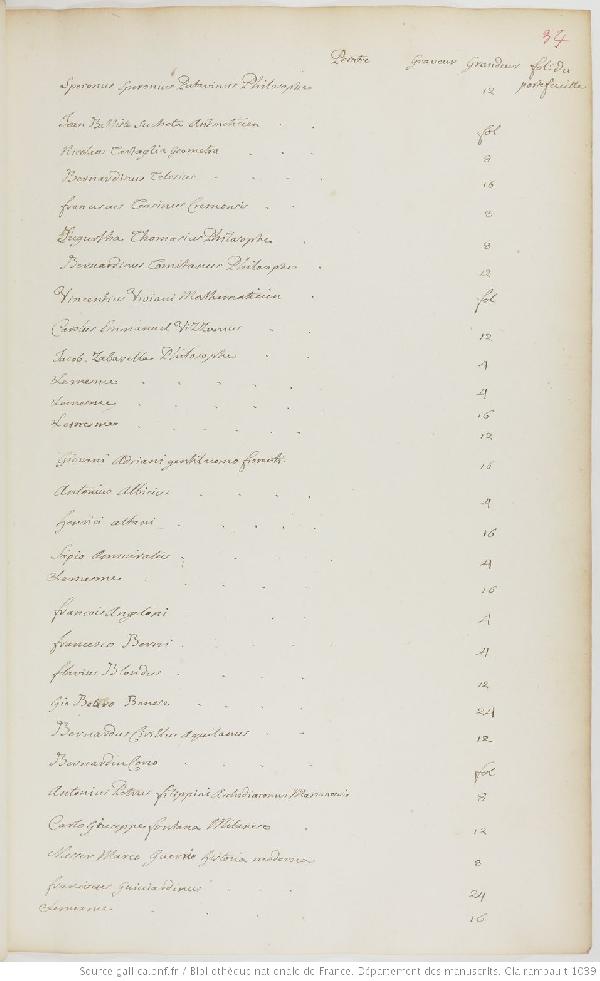 34
Peintre Graveur Grandeur fol. du
portefeuille
Speronus Speronius Patavinus Philosophe 12
Jean Bttiste Arithmeticien fol
Nicolas Tartaglia geometra 8
Bernardinus Telesius 16
franciscus Cremensis 8
Jugurtha Thomasius Philosophe 8
Bernardinus Tomitanus Philosophe 12
Vincentius Viviani Mathematicien fol
Carolus Emmanuel Vizzanius 12
Jacob. Zabarella Philosophe 4
Lemesme 4
Lemesme 16
Lemesme 12
Giovani Adriani gentiluomo fiorenti. 16
Antonius Albicius 4
henrici altani 16
Sipio Ammiratus 4
Lemesme 16
francois Angeloni 4
francesco Berni 4
flavius Blondus 12
Gio Botero Benese 24
Bernardus Cirillus Aquilanus 12
Bernardin Corio fol
Antonius Petrus filippini Archidiaconus Marianensis 8
Carlo Giuseppe fontana Milanese 12
Messer Marco Guazzo historia moderna 8
franciscus Guicciardinus 24
Lemesme 16
Source gallica.bnf.fr / Bibliothèque nationale de France. Département des manuscrits. Clairambault 1039